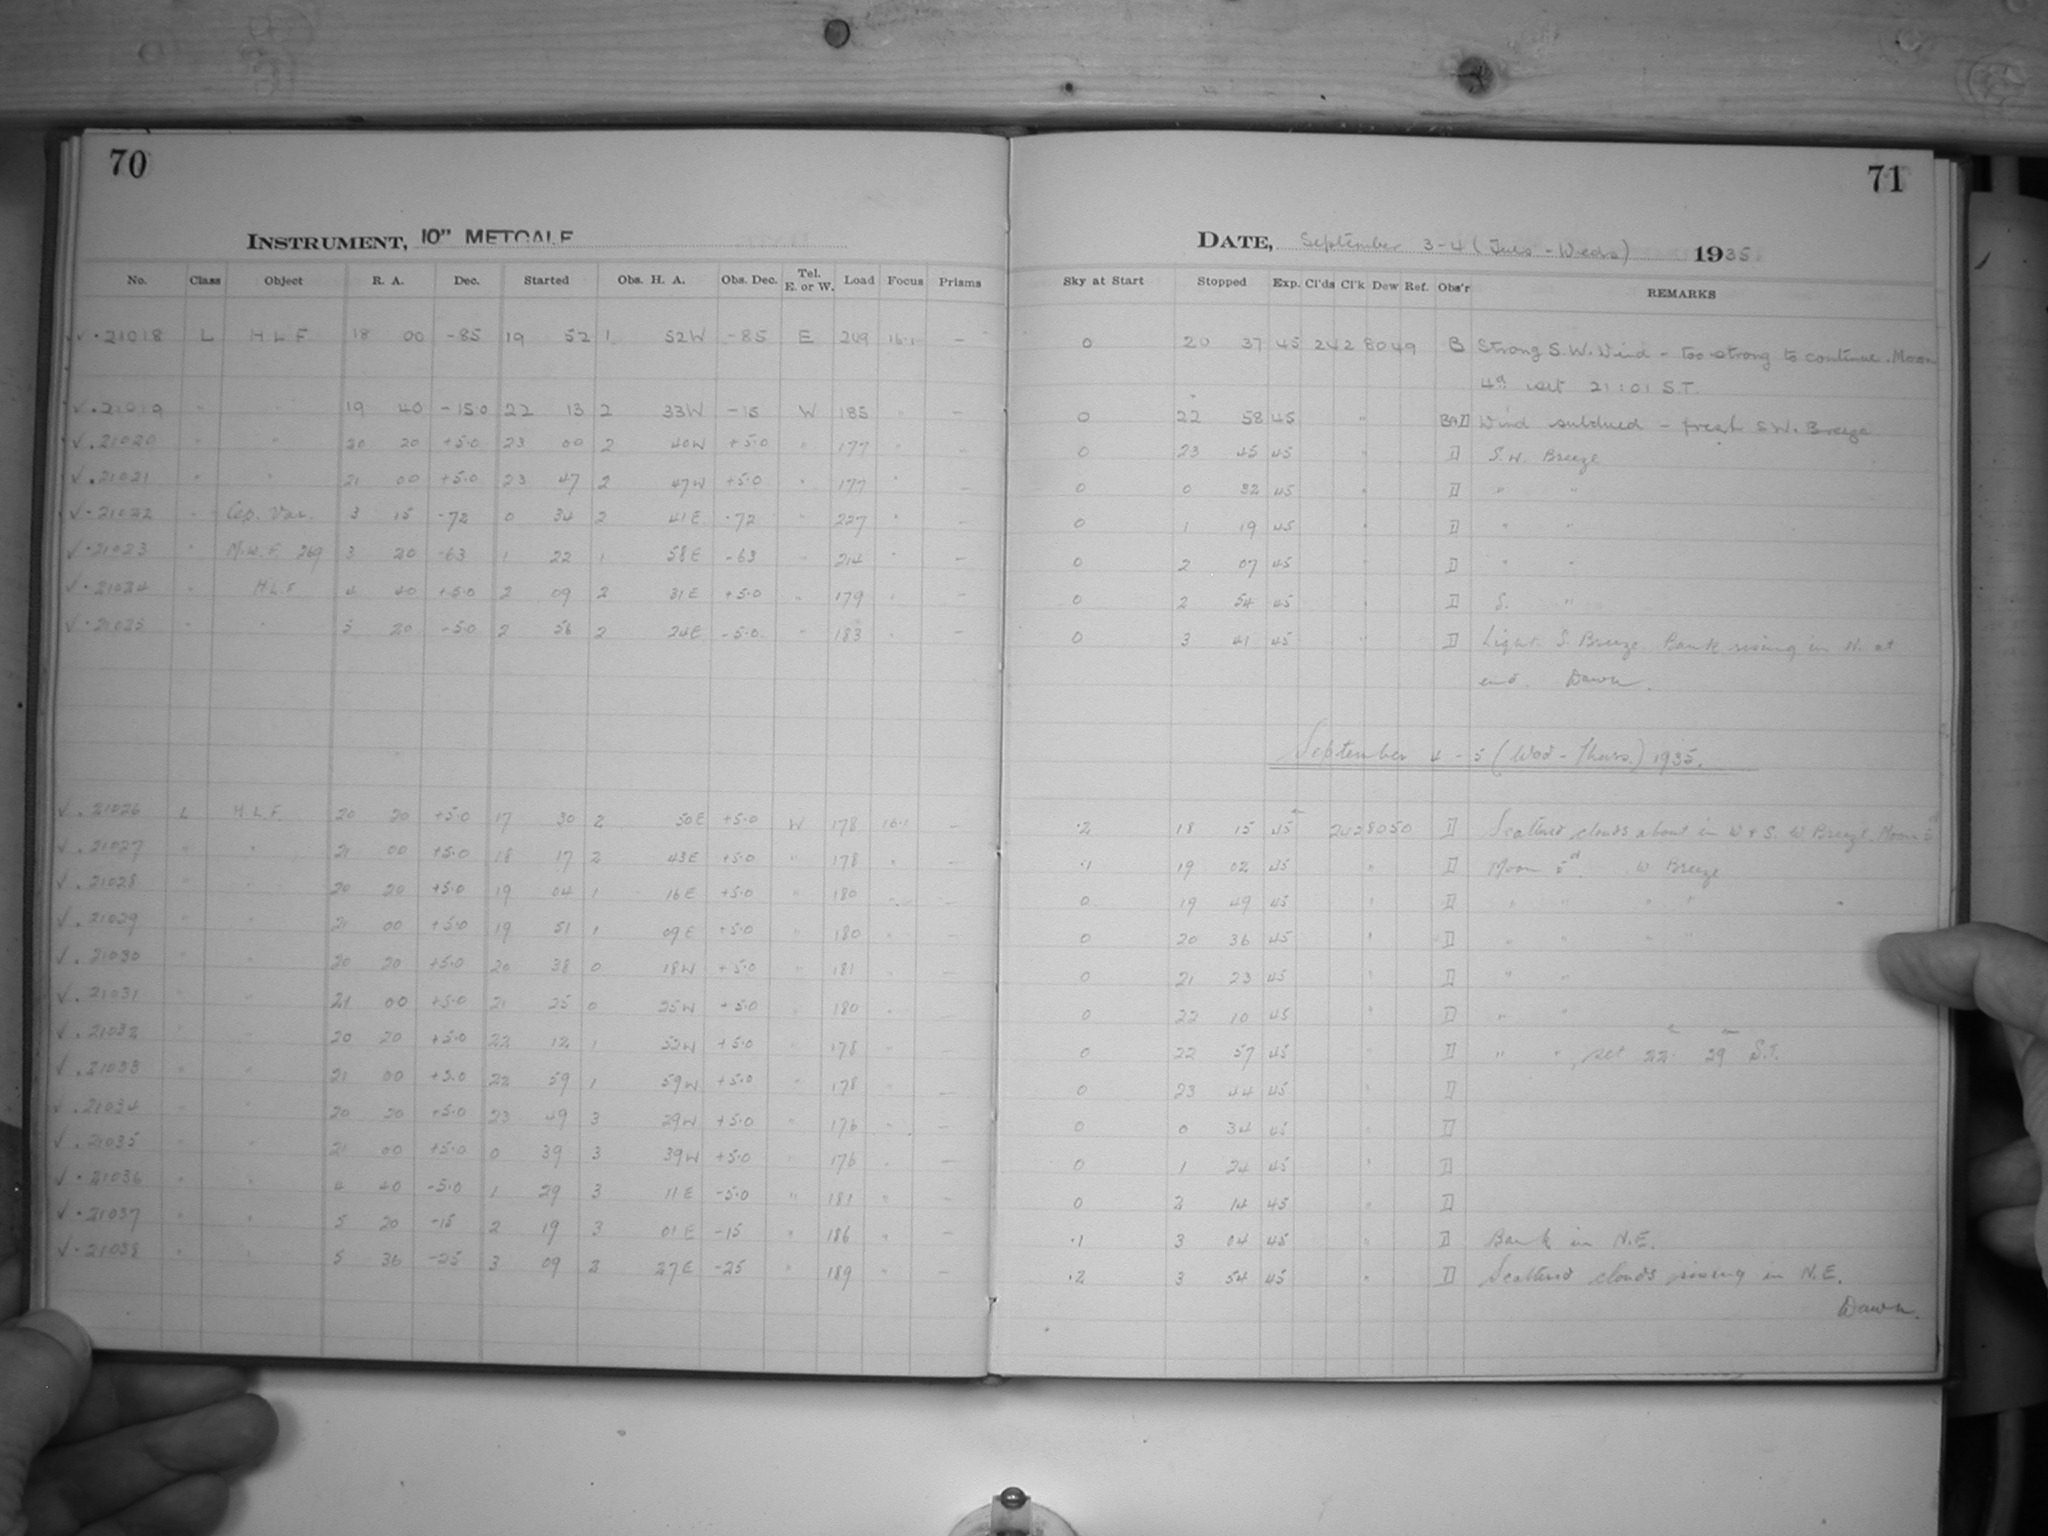 70
INSTRUMENT, 10" METCALF
No. Class Object R. A. Dec. Started Obs. H. A. Obs. Dec. Tel. E. or W. Load Focus Prisms
√ · 21018 L H L F 18 00 -85 19 52 1 52W -85 E 209 16.1 —
√ . 21019 " " 19 40 -15.0 22 13 2 33W -15 W 185 " —
√ . 21020 " " 20 20 +5.0 23 00 2 40W +5.0 " 177 "
√ . 21021 " " 21 00 +5.0 23 47 2 47W +5.0 " 177 " —
√ · 21022 " Cep. Var. 3 15 -72 0 34 2 41E -72 " 227 " —
√ · 21023 " M.W.F. 269 3 20 -63 1 22 1 58E -63 " 214 " —
√ · 21024 " H L F 4 40 +5.0 2 09 2 31E +5.0 " 179 " —
√ · 21025 " " 5 20 -5.0 2 56 2 24E -5.0 " 183 " —
√ . 21026 L H L F 20 20 +5.0 17 30 2 50E +5.0 W 178 16.1 —
√ . 21027 " " 21 00 +5.0 18 17 2 43E +5.0 " 178 " —
√ . 21028 " " 20 20 +5.0 19 04 1 16E +5.0 " 180 " —
√ . 21029 " " 21 00 +5.0 19 51 1 09E +5.0 " 180 " —
√ . 21030 " " 20 20 +5.0 20 38 0 18W +5.0 " 181 " —
√ . 21031 " " 21 00 +5.0 21 25 0 25W +5.0 " 180 " —
√ . 21032 " " 20 20 +5.0 22 12 1 52W +5.0 " 178 " —
√ . 21033 " " 21 00 +5.0 22 59 1 59W +5.0 " 178 " —
√ . 21034 " " 20 20 +5.0 23 49 3 29W +5.0 " 176 " —
√ . 21035 " " 21 00 +5.0 0 39 3 39W +5.0 " 176 " —
√ · 21036 " " 4 40 -5.0 1 29 3 11E -5.0 " 181 " —
√ · 21037 " " 5 20 -15 2 19 3 01E -15 " 186 " —
√ · 21038 " " 5 36 -25 3 09 2 27E -25 " 189 " —
71
DATE, September 3-4 (Tues - Weds) 1935
Sky at Start Stopped Exp. Cl'ds Cl'k Dew Ref. Obs'r REMARKS
0 20 37 45 242 80 49 B Strong S.W. Wind - too strong to continue. Moon
4d set 21:01 S.T.
0 22 58 45 " B&D Wind subdued - fresh S.W. Breeze
0 23 45 45 " D S.W. Breeze
0 0 32 45 " D " "
0 1 19 45 " D " "
0 2 07 45 " D " "
0 2 54 45 " D S. "
0 3 41 45 " D Light S. Breeze. Bank rising in N. at
end. Dawn.
September 4 - 5 (Wed - Thurs.) 1935.
.2 18 15 45 242 80 50 D Scattered clouds about in W + S. W Breeze. Moon 5d
.1 19 02 45 " D Moon 5d. W Breeze
0 19 49 45 " D " " " "
0 20 36 45 " D " " " "
0 21 23 45 " D " "
0 22 10 45 " D " "
0 22 57 45 " D " ", set 22 29 S.T.
0 23 44 45 " D
0 0 34 45 " D
0 1 24 45 " D
0 2 14 45 " D
.1 3 04 45 " D Bank in N.E.
.2 3 54 45 " D Scattered clouds rising in N.E.
Dawn.